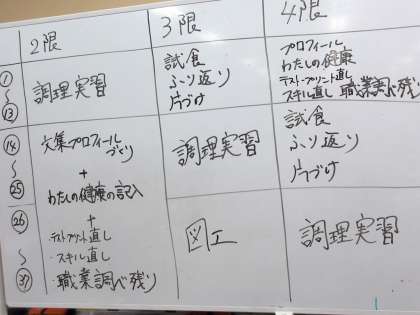 2限
3限
4限
①
〜
⑬
調理実習
試食
ふり返り
片づけ
プロフィール
わたしの健康
テスト・プリント直し
スキル直し 職業調べ残り
⑭
〜
㉕
文集プロフィール
づくり
+
わたしの健康の記入
+
テストプリント直し
・スキル直し
・職業調べ残り
調理実習
試食
ふり返り
片づけ
㉖
〜
図工
調理実習